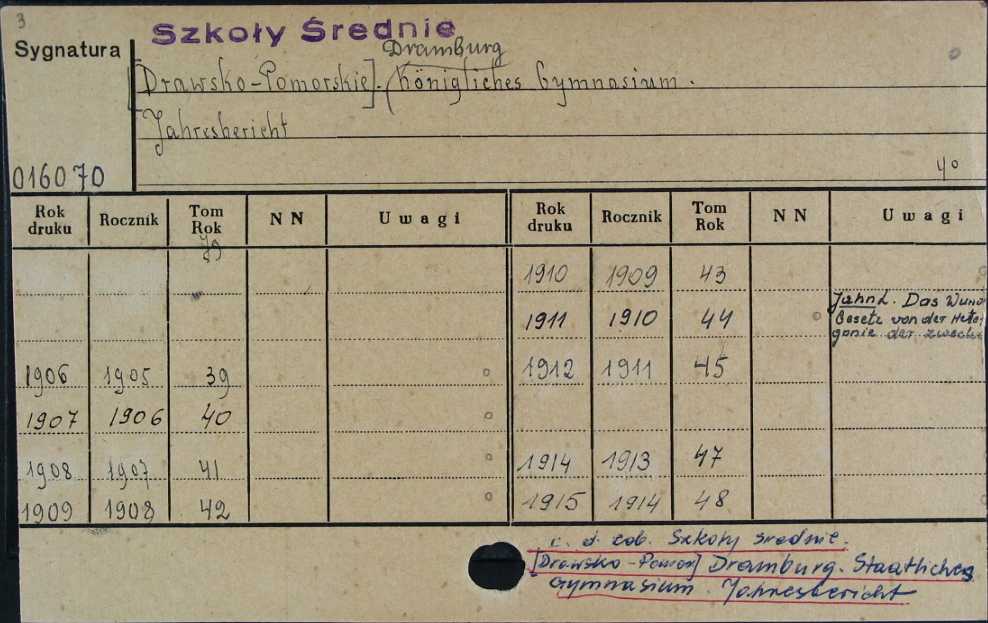 3
Szkoły Średnie
Sygnatura
Dramburg
[Drawsko-Pomorskie]. Königliches Gymnasium.
Jahresbericht
016070
4o
Rok druku Rocznik Tom Rok NN Uwagi Rok druku Rocznik Tom Rok NN Uwagi
Jg
1910 1909 43
1911 1910 44 Jahn L. Das Wund
Gesetz von der Hete-
gonie der zwecke
1906 1905 39 1912 1911 45
1907 1906 40
1908 1907 41 1914 1913 47
1909 1908 42 1915 1914 48
c. d. zob. Szkoły średnie.
[Drawsko-Pomor] Dramburg. Staatliches
Gymnasium. Jahresbericht